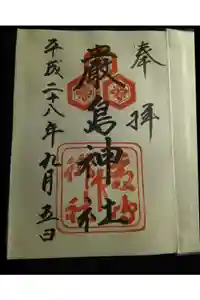 奉拝
厳島神社
平成二十八年九月五日